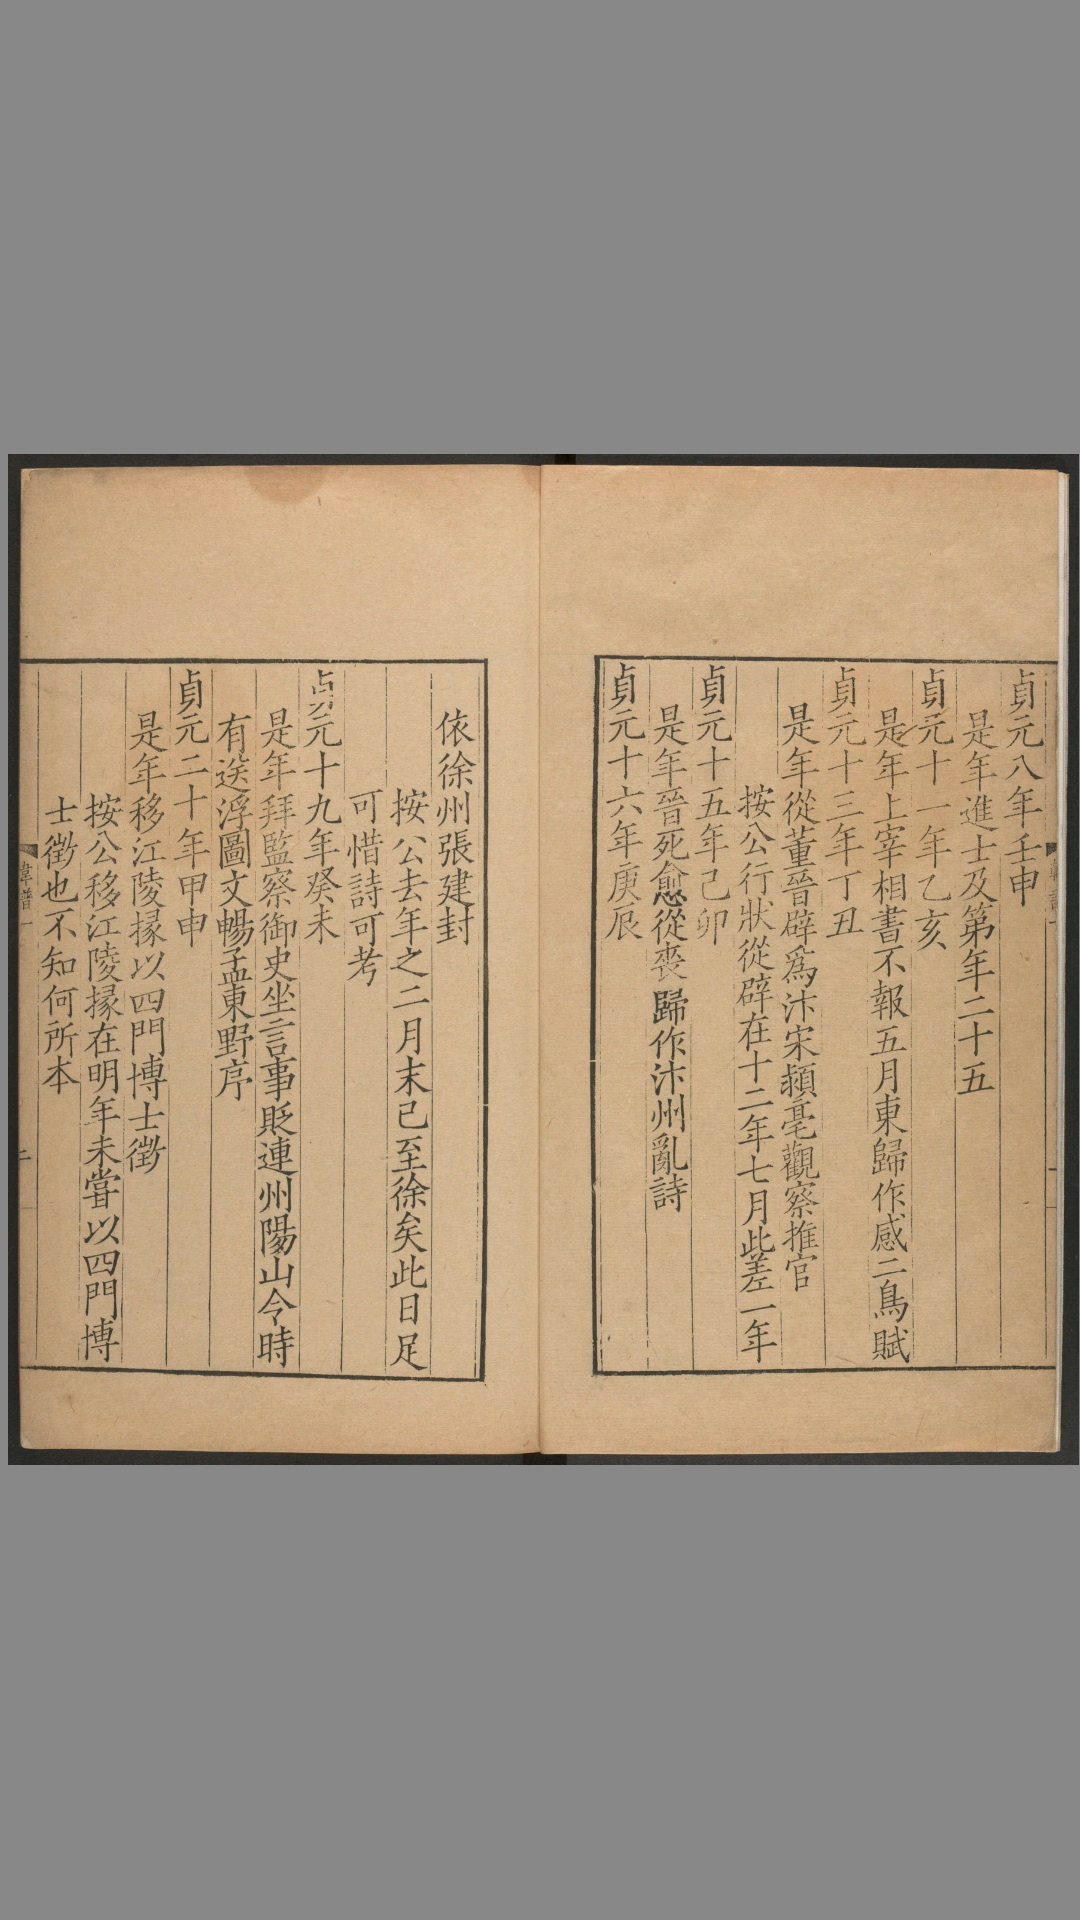 貞元八年壬申
是年進士及第年二十五
貞元十一年乙亥
是年上宰相書不報五月東歸作感二鳥賦
貞元十三年丁丑
是年從董晉辟爲汴宋頴亳觀察推官
按公行狀從辟在十二年七月此差一年
貞元十五年己卯
是年晉死愈從喪歸作汴州亂詩
貞元十六年庚辰
依徐州張建封
按公去年之二月末已至徐矣此日足
可惜詩可考
貞元十九年癸未
是年拜監察御史坐言事貶連州陽山令時
有送浮圖文暢孟東野序
貞元二十年甲申
是年移江陵掾以四門博士徵
按公移江陵掾在明年未嘗以四門博
士徵也不知何所本